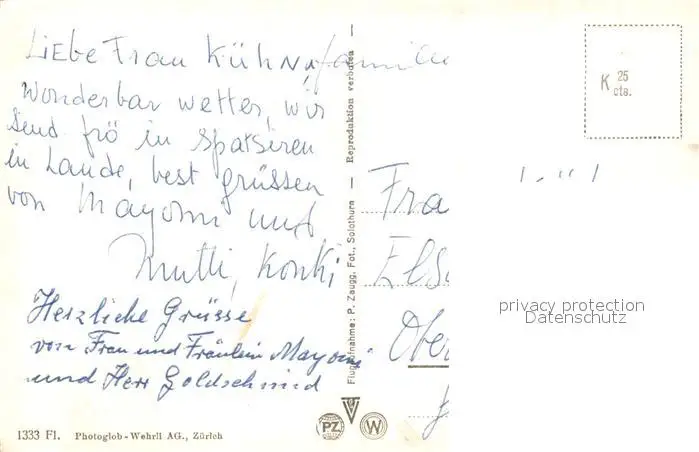 Liebe Frau Kühn, familie
Wonderbar wetter, wir
send frö in spatsiren
in Lande, best grüssen
von Mayomi und
Mutti, Konki
Herzliche Grüsse
von Frau und Fräulein Mayomi
und Herr Goldschmid
1333 Fl. Photoglob-Wehrli AG., Zürich
Flugaufnahme: P. Zaugg, Fot., Solothurn — Reproduktion verboten —
PZ
W
K 25 cts.
Fra
ElS
Ober
privacy protection
Datenschutz